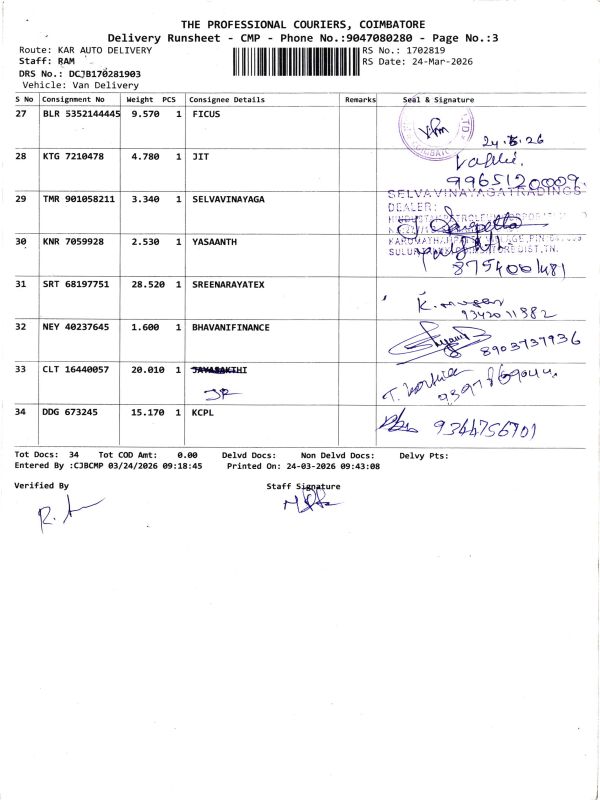 THE PROFESSIONAL COURIERS, COIMBATORE
Delivery Runsheet - CMP - Phone No.:9047080280 - Page No.:3
Route: KAR AUTO DELIVERY RS No.: 1702819
Staff: RAM RS Date: 24-Mar-2026
DRS No.: DCJB170281903
Vehicle: Van Delivery
S No Consignment No Weight PCS Consignee Details Remarks Seal & Signature
27 BLR 5352144445 9.570 1 FICUS
28 KTG 7210478 4.780 1 JIT
9965120009
29 TMR 901058211 3.340 1 SELVAVINAYAGA SELVAVINAYAGATRADINGS
DEALER:
30 KNR 7059928 2.530 1 YASAANTH
31 SRT 68197751 28.520 1 SREENARAYATEX
32 NEY 40237645 1.600 1 BHAVANIFINANCE
8903737936
33 CLT 16440057 20.010 1 JAYASAKTHI
34 DDG 673245 15.170 1 KCPL 9344756701
Tot Docs: 34 Tot COD Amt: 0.00 Delvd Docs: Non Delvd Docs: Delvy Pts:
Entered By :CJBCMP 03/24/2026 09:18:45 Printed On: 24-03-2026 09:43:08
Verified By Staff Signature